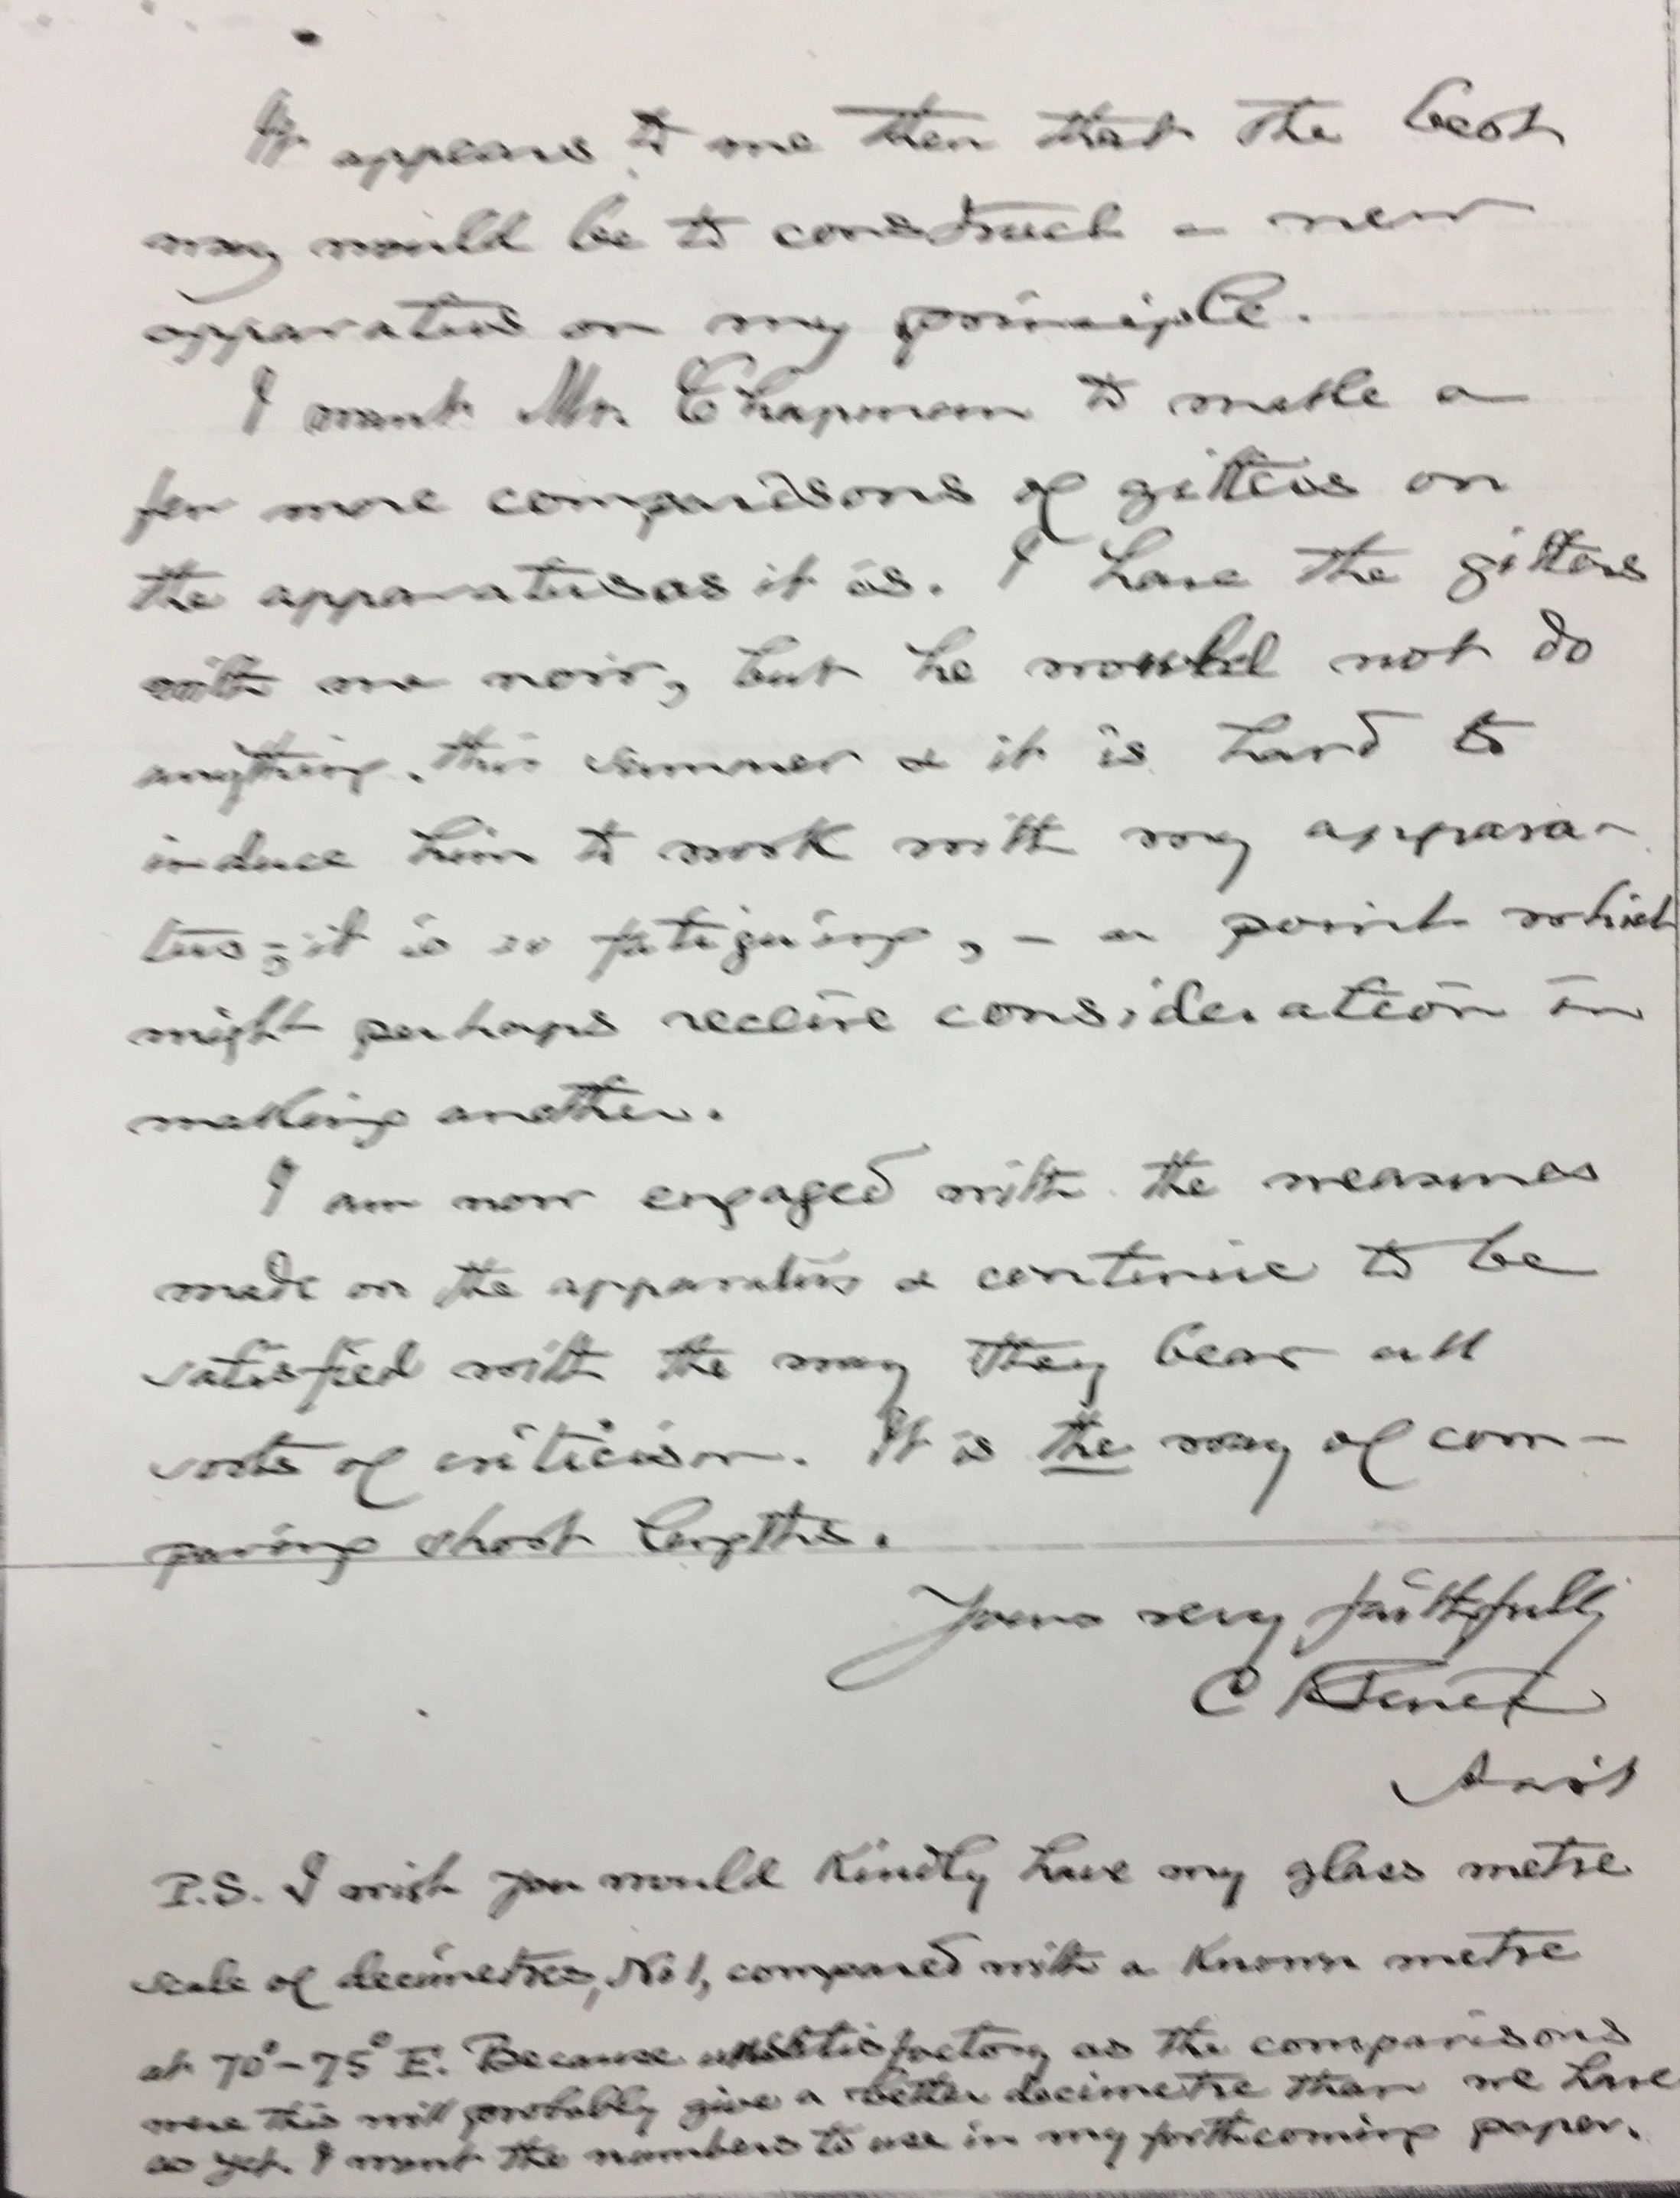 It appears to me then that the best
way would be to construct a new
apparatus on my principle.
I want Mr. Chapman to make a
few more comparisons of gitters on
the apparatus as it is. I have the gitters
with me now, but he would not do
anything this summer & it is hard to
induce him to work with my appara-
tus; it is so fatiguing, - a point which
might perhaps receive consideration in
making another.
I am now engaged with the measures
made on the apparatus & continue to be
satisfied with the way they bear all
sorts of criticism. It is the way of com-
paring short lengths.
Yours very faithfully
C
P.S. I wish you would kindly have my glass metre
scale of decimetres, No 1, compared with a known metre
at 70°-75° F. Because unsatisfactory as the comparisons
were this will probably give a better decimetre than we have
as yet. I want the numbers to use in my forthcoming paper.